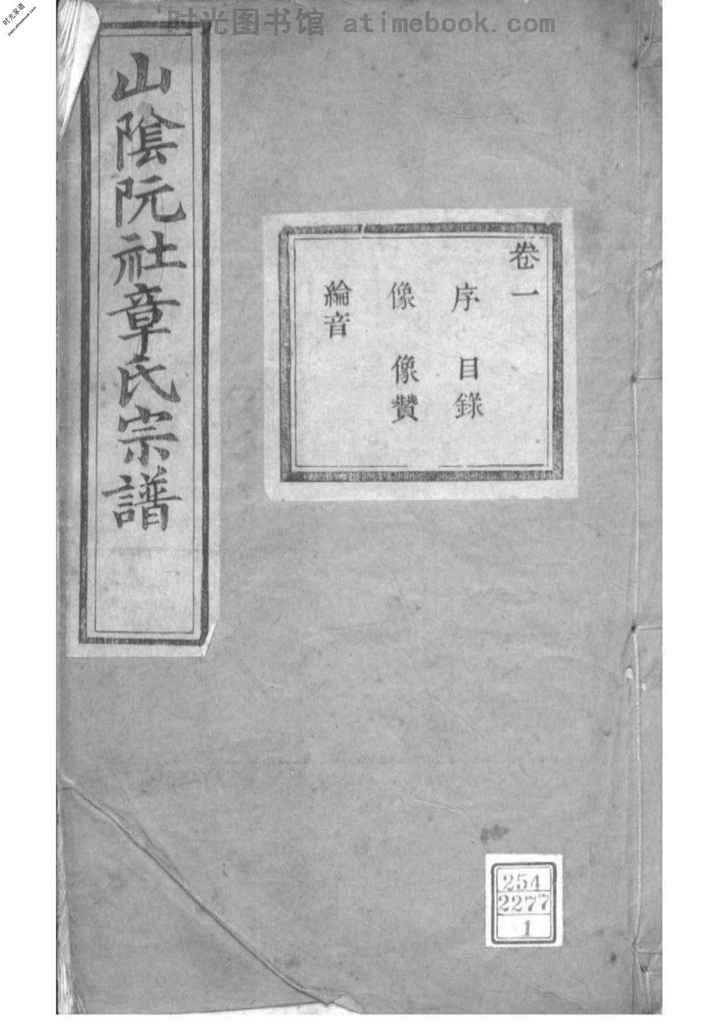 时光图书馆 atimebook.com
时光家谱
山陰阮社章氏宗譜
卷一
序 目錄
像 像贊
綸音
254
2277
1